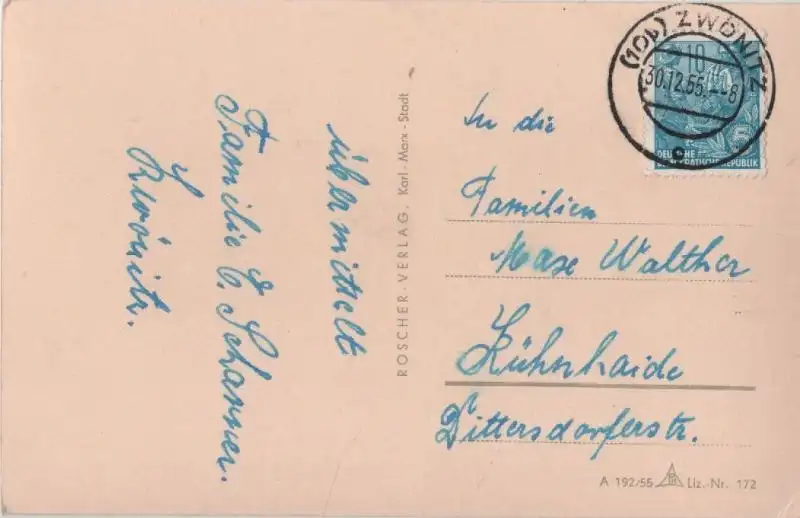 übermittelt
Familie E. Scharrer.
Zwönitz.
ROSCHER-VERLAG, Karl-Marx-Stadt
(10b) ZWÖNITZ
30.12.55.--8
c
10
DEUTSCHE
DEMOKRATISCHE REPUBLIK
In die
Familien
Max Walther
Kühnhaide
Dittersdorferstr.
A 192/55 Liz.-Nr. 172